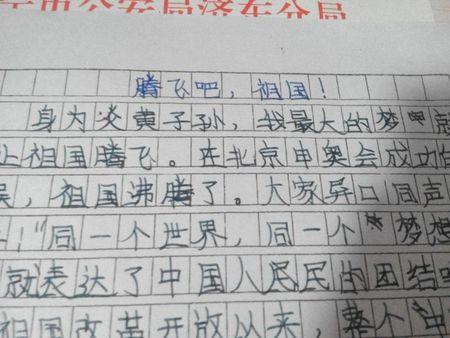 公安局济东分局
腾飞吧，祖国！
身为炎黄子孙，我最大的梦
让祖国腾飞。在北京申奥会成功
，祖国沸腾了。大家异口同声
！"同一个世界，同一个梦想
就表达了中国人民民的团结
祖国改革开放以来，整个中